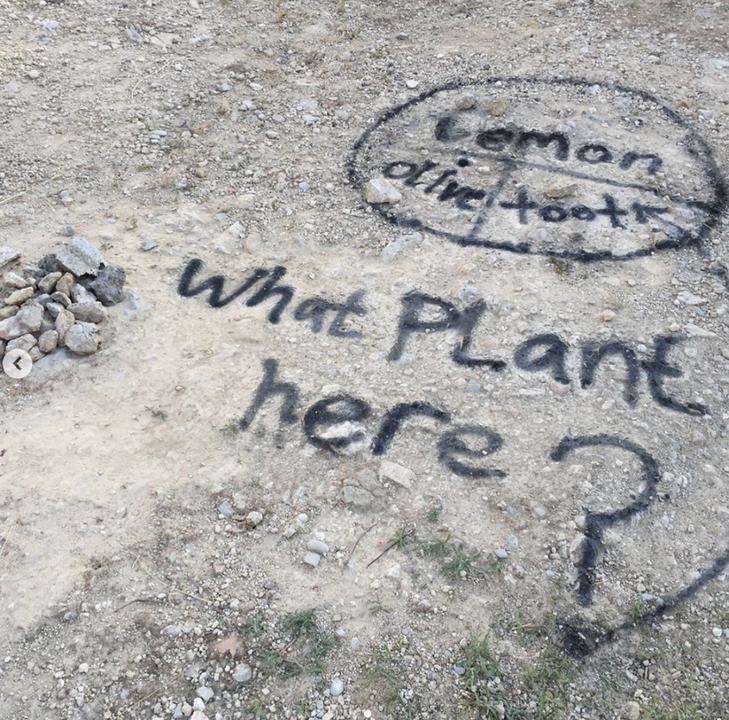 Lemon
olive tootk
What PLant
here ?